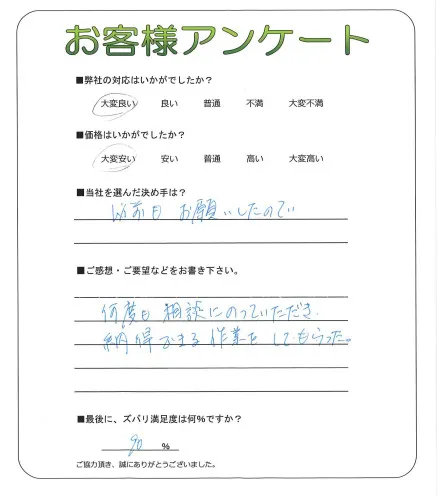 お客様アンケート
■弊社の対応はいかがでしたか？
大変良い 良い 普通 不満 大変不満
■価格はいかがでしたか？
大変安い 安い 普通 高い 大変高い
■当社を選んだ決め手は？
以前も お願いしたので
■ご感想・ご要望などをお書き下さい。
何度も 相談にのっていただき、
納得できる 作業を してもらった。
■最後に、ズバリ満足度は何%ですか？
90 %
ご協力頂き、誠にありがとうございました。